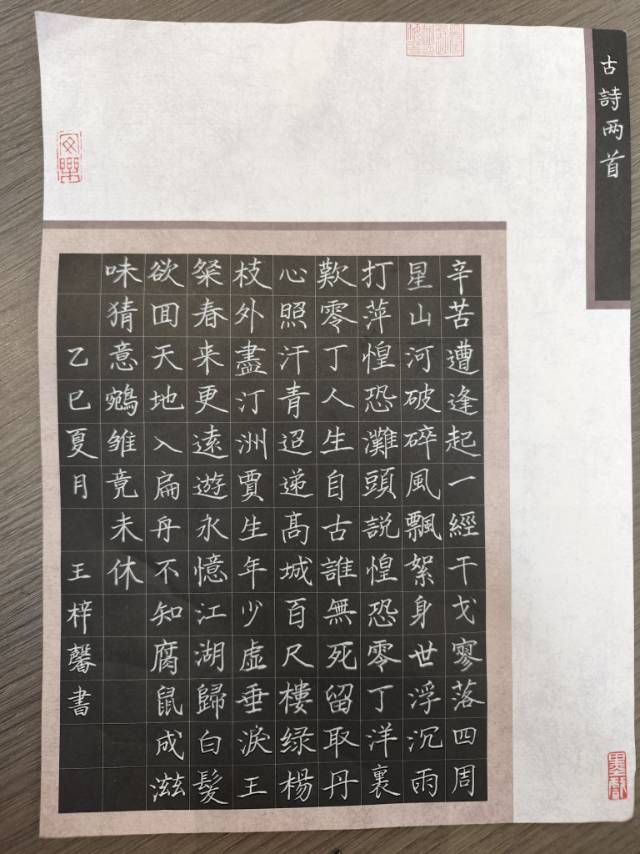 古詩两首
辛苦遭逢起一經干戈寥落四周
星山河破碎風飄絮身世浮沉雨
打萍惶恐灘頭說惶恐零丁洋裏
歎零丁人生自古誰無死留取丹
心照汗青迢递高城百尺樓绿楊
枝外盡汀洲賈生年少虚垂淚王
粲春来更遠遊永憶江湖歸白髮
欲囬天地入扁舟不知腐鼠成滋
味猜意鵷雏竟未休
乙巳夏月 王梓馨書